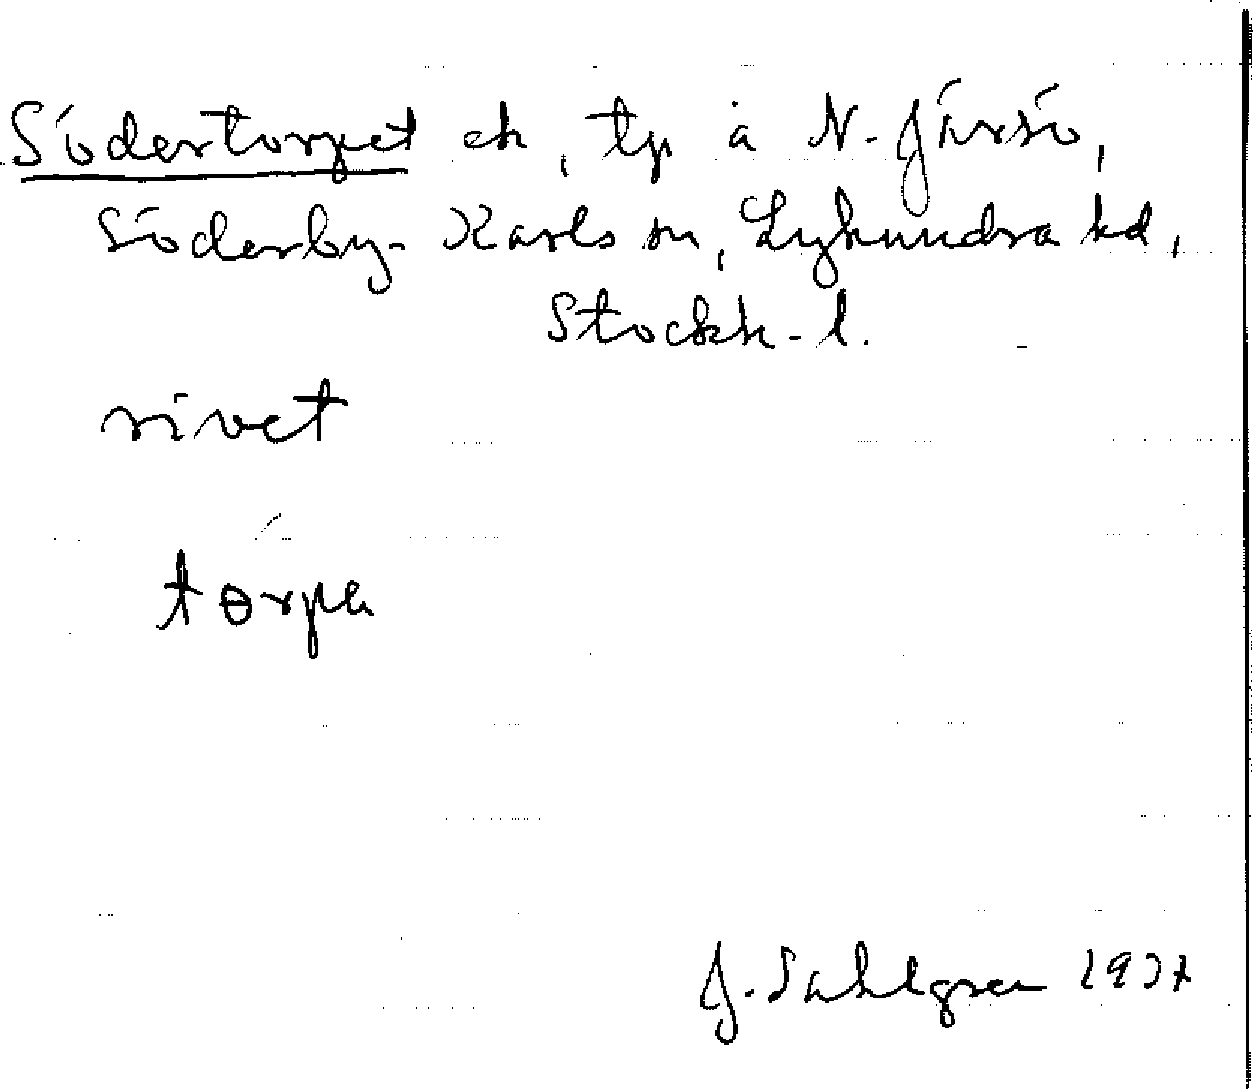 Södertorpet ch, tp å N. Järsö,
Söderby-Karls sn, Lyhundra hd,
Stockh-l.
rivet
tɵrpa
J. Sahlgren 1937